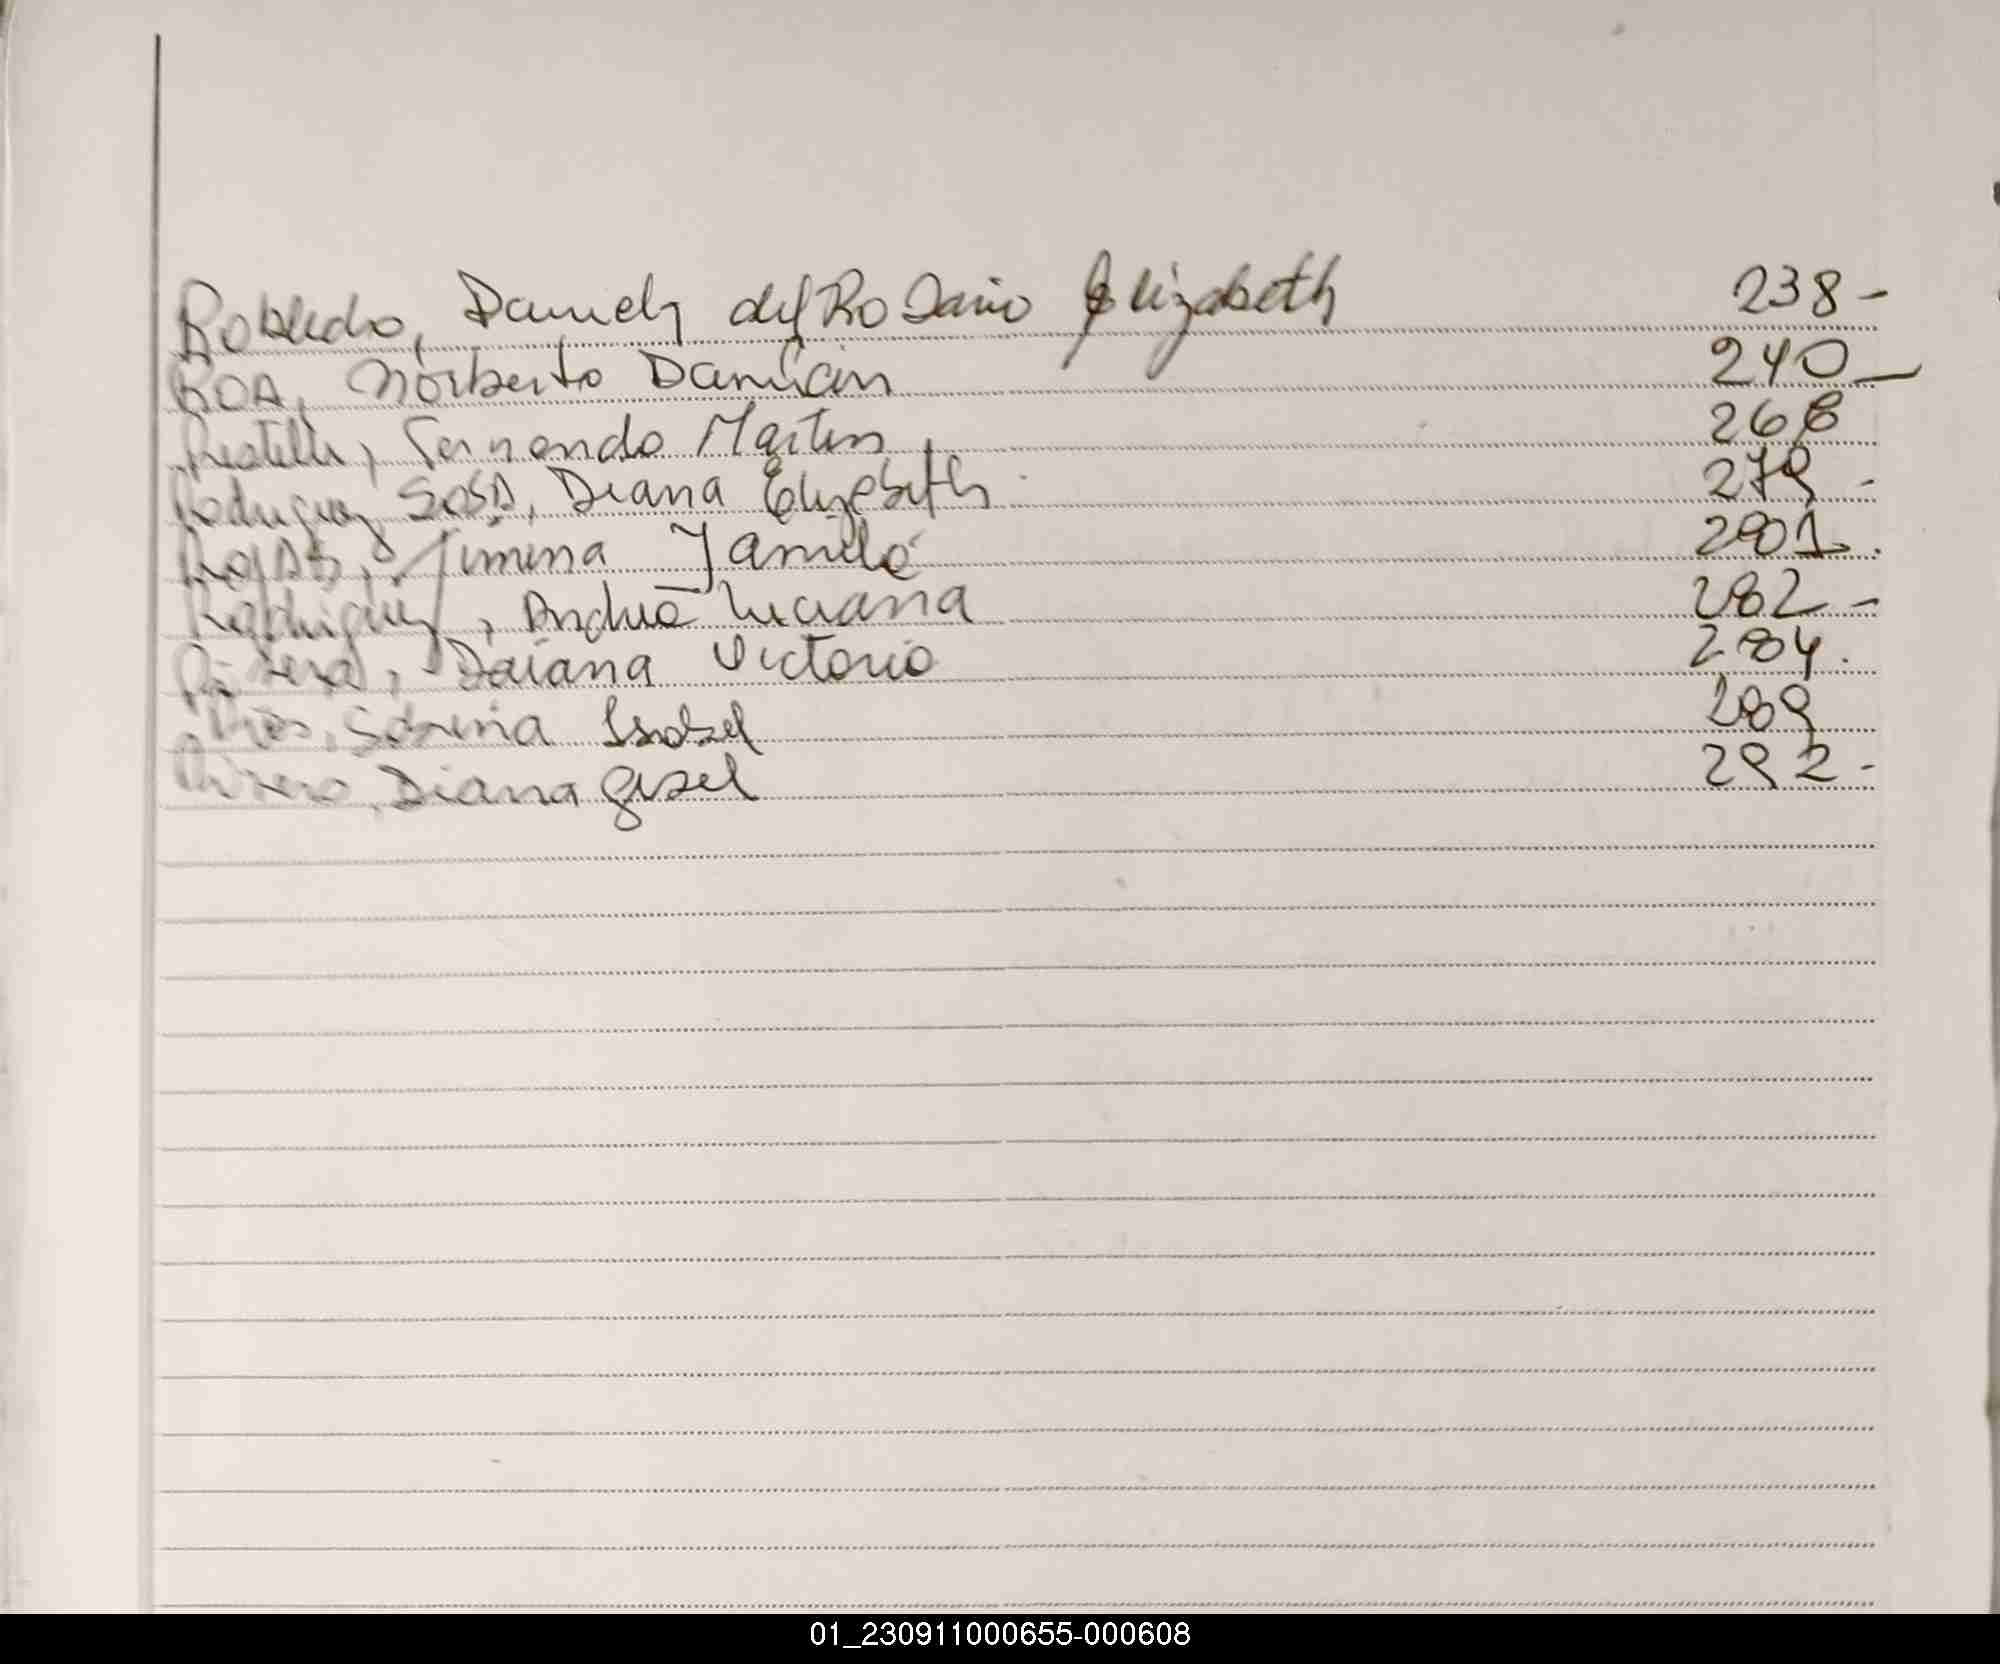 Robledo, Daniela del Rosario Elizabeth 238-
ROA, Norberto Damián 240-
Fernando Martin 268
Rodriguez SOSA, Diana Elizabeth 279-
ROJAS, Jimena Jamila 281.
Rodriguez, Andrea Luciana 282-
Daiana Victoria 284.
Rios, Sabrina Isabel 289
Rivero, Diana Gisel 292-
01_230911000655-000608